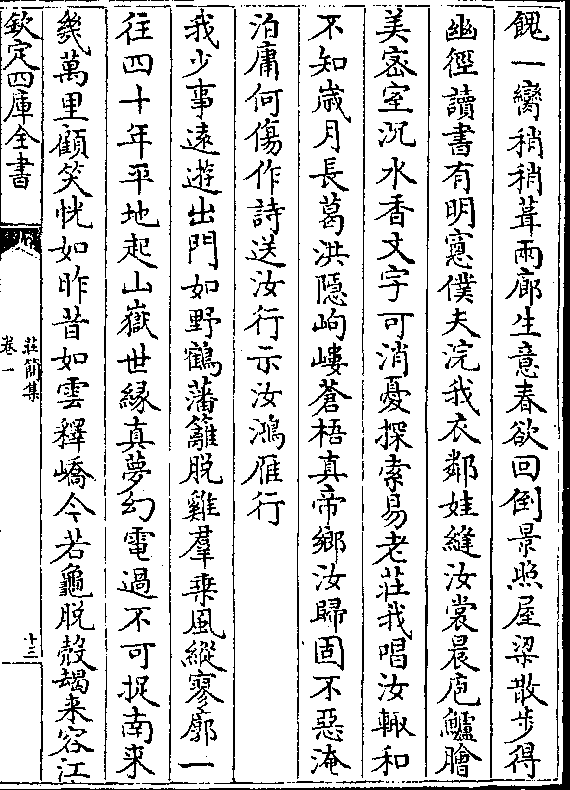 餽一臠稍稍葺兩廊生意春欲回倒景照屋梁散步得
幽徑讀書有明窻僕夫浣我衣鄰娃縫汝裳晨庖鱸膾
美宻室沉水香文字可消憂探索易老莊我唱汝輒和
不知嵗月長葛洪隱岣嶁蒼梧真帝鄉汝歸固不惡淹
泊庸何傷作詩送汝行示汝鴻雁行
我少事遠遊出門如野鶴藩籬脱雞羣乗風縱寥廓一
往四十年平地起山嶽世縁真夢幻電過不可捉南來
幾萬里顧笑恍如昨昔如雲釋嶠今若龜脱殻朅来容江
欽定四庫全書
莊簡集
卷一
十三